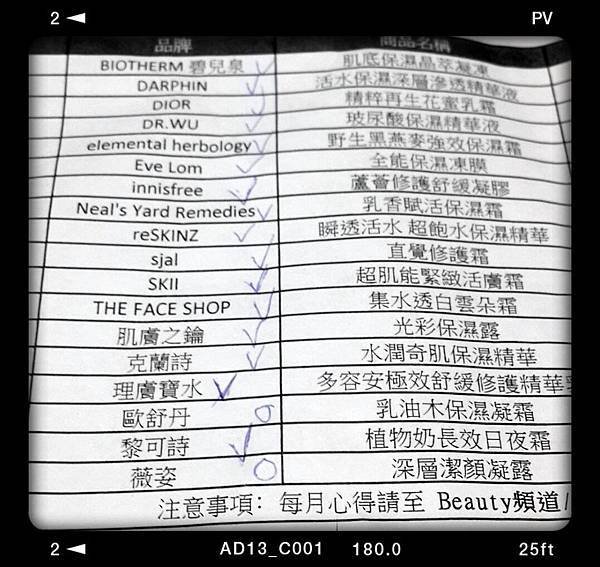 2 ◄ PV
品牌 商品名稱
BIOTHERM 碧兒泉 肌底保濕晶萃凝凍
DARPHIN 活水保濕深層滲透精華液
DIOR 精粹再生花蜜乳霜
DR.WU 玻尿酸保濕精華液
elemental herbology 野生黑燕麥強效保濕霜
Eve Lom 全能保濕凍膜
innisfree 蘆薈修護舒緩凝膠
Neal's Yard Remedies 乳香賦活保濕霜
reSKINZ 瞬透活水 超飽水保濕精華
sjal 直覺修護霜
SKII 超肌能緊緻活膚霜
THE FACE SHOP 集水透白雲朵霜
肌膚之鑰 光彩保濕露
克蘭詩 水潤奇肌保濕精華
理膚寶水 多容安極效舒緩修護精華乳
歐舒丹 乳油木保濕凝霜
黎可詩 植物奶長效日夜霜
薇姿 深層潔顏凝露
注意事項: 每月心得請至 Beauty頻道/
2 ◄ AD13_C001 180.0 25ft